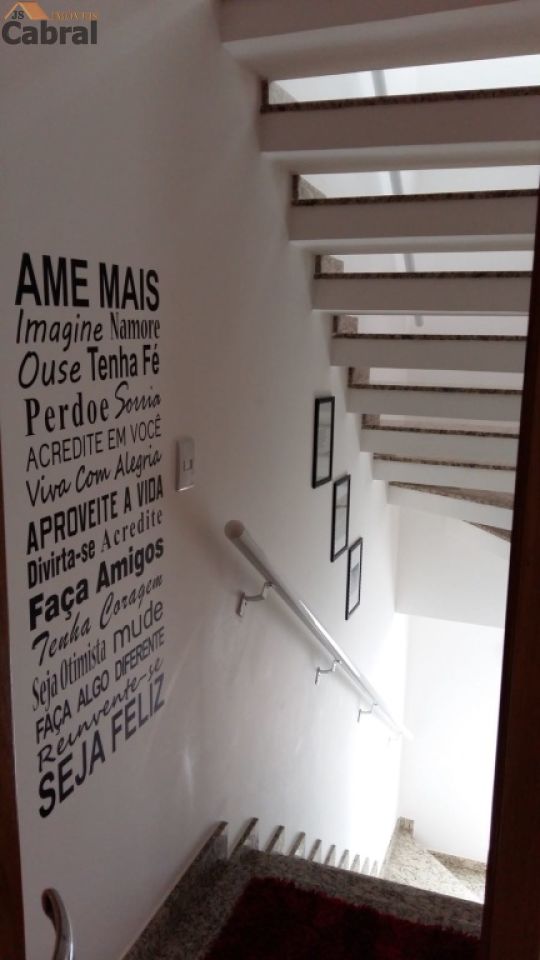 JS IMÓVEIS
Cabral
AME MAIS
Imagine Namore
Ouse Tenha Fé
Perdoe Sorria
ACREDITE EM VOCÊ
Viva Com Alegria
APROVEITE A VIDA
Divirta-se Acredite
Faça Amigos
Tenha Coragem
Seja Otimista mude
FAÇA ALGO DIFERENTE
Reinvente-se
SEJA FELIZ